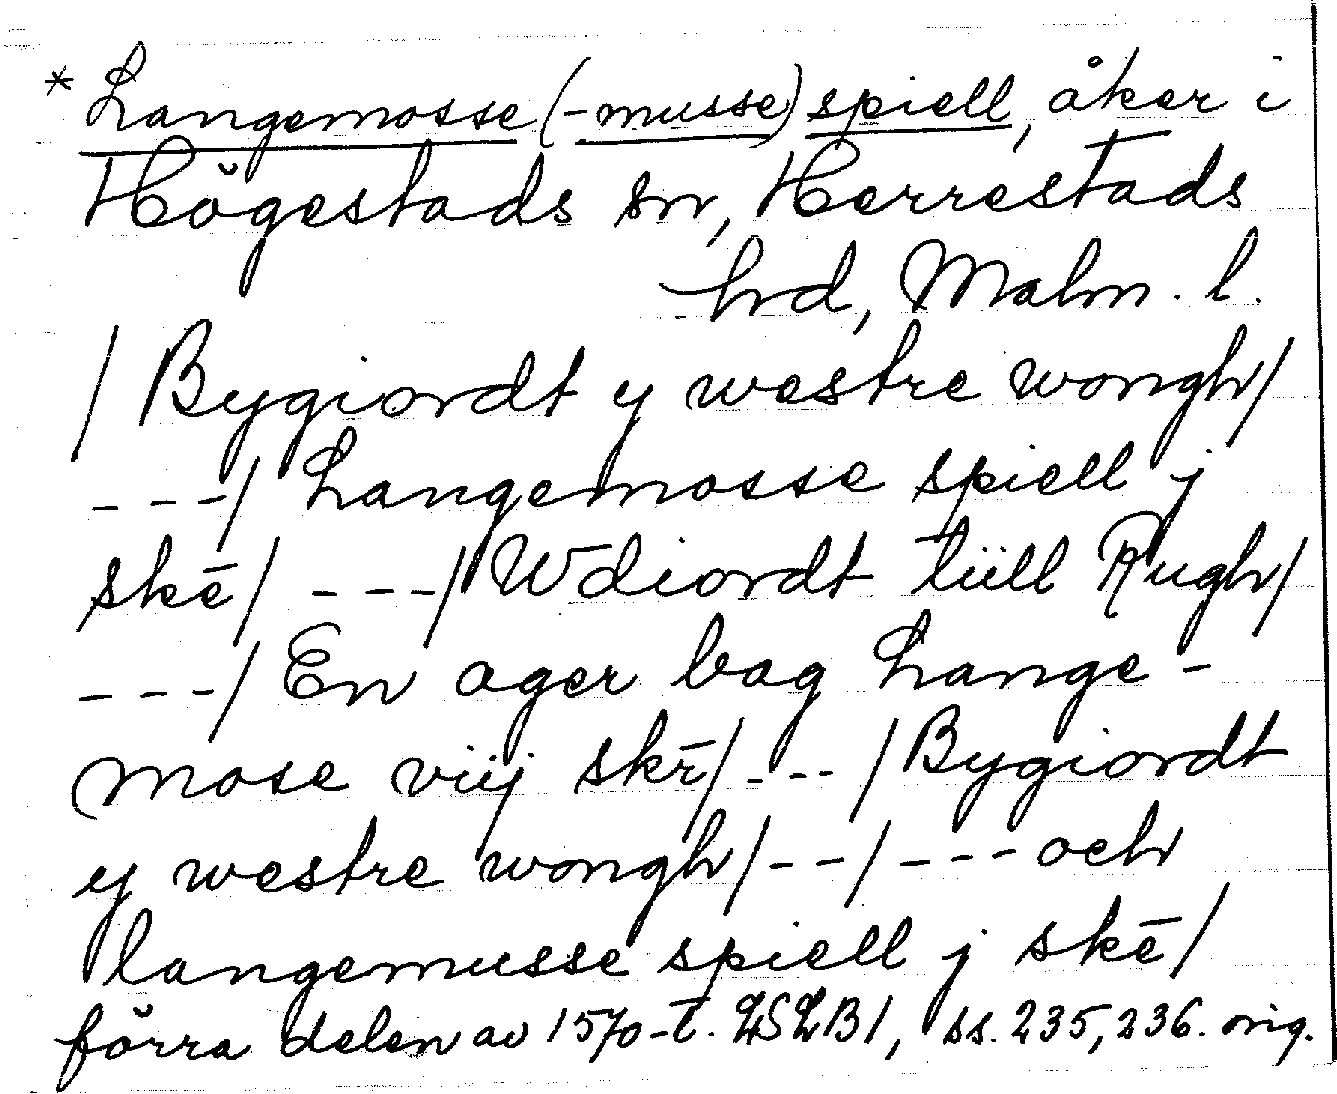 * Langemosse (-musse) spiell, åker i
Högestads sn, Herrestads
hrd, Malm. l.
/ Bygiordt y westre wongh/
---/ Langemosse spiell j
skē/ ---/ Wdiordt tüll Rugh/
---/ En ager bag Lange-
mose viij skē/ --- / Bygiordt
y westre wongh/ --/ --- och
langemusse spiell j skē/
förra delen av 1570-t. LSLB1, ss. 235, 236. orig.